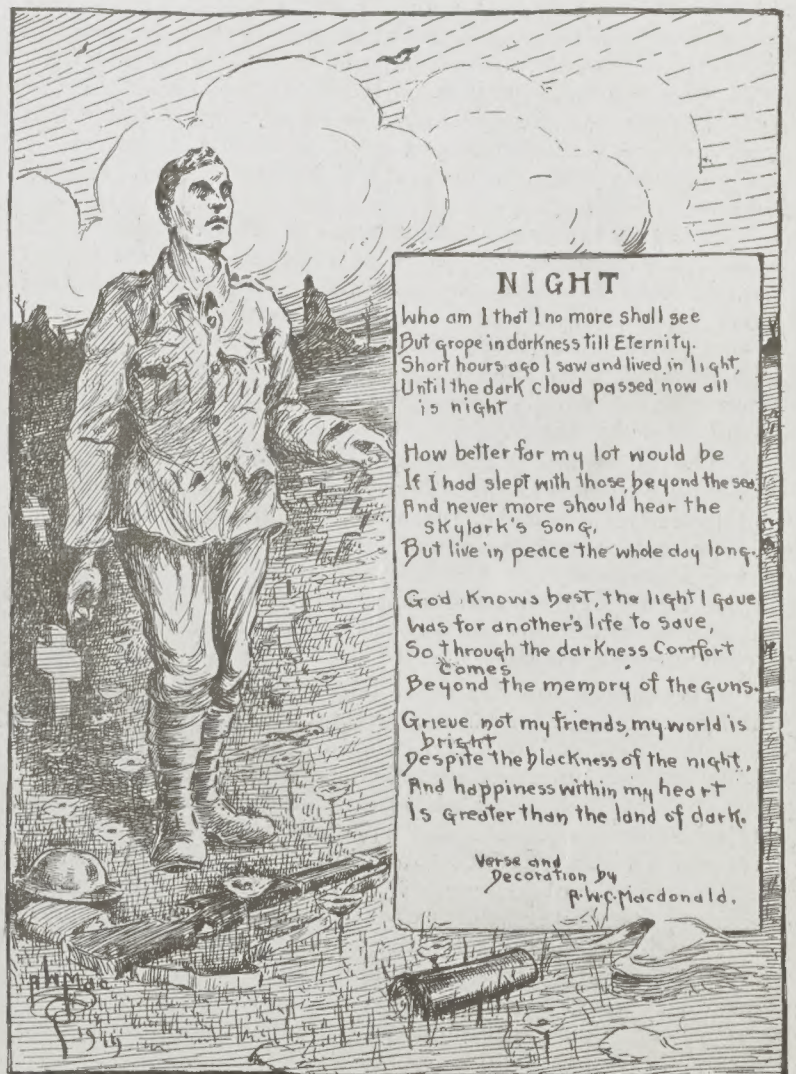 NIGHT
Who am I that I no more shall see
But grope in darkness till Eternity.
Short hours ago I saw and lived in light,
Until the dark cloud passed, now all
is night
How better far my lot would be
If I had slept with those, beyond the sea,
And never more should hear the
Skylark's Song,
But live in peace the whole day long.
God Knows best, the light I gave
Was for another's life to save,
So through the darkness Comfort
Comes
Beyond the memory of the Guns.
Grieve not my friends, my world is
bright
Despite the blackness of the night,
And happiness within my heart
Is Greater than the land of dark.
Verse and
Decoration by
A.W.C. Macdonald.
1919